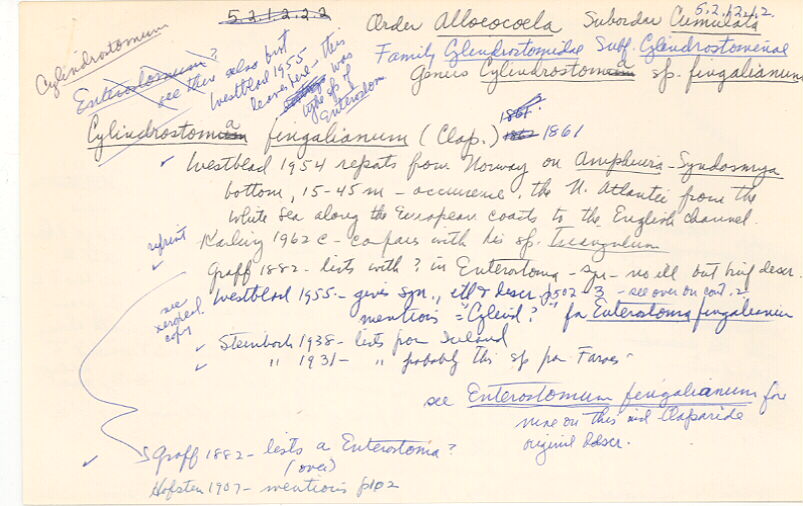 5.2.1.2.2.2
5.2.1.2.1.2.
Order Allococoela Suborder Cumulata
Cylindrostomum
Family Cylindrostomidae Subf. Cylindrostominae
Genus Cylindrostoma sp. fingalianum
Enterostomum?
see there also but
Westblad 1955
leaves here - this
was
type sp of
Enterostom
Cylindrostoma fingalianum (Clap.) 1861
1861
Westblad 1954 reports from Norway on Amphiura-Syndosmya
bottom, 15-45 m - occurrence, the N. Atlantic from the
White Sea along the European coasts to the English channel.
reprint
Karling 1962c - compares with his sp. Triangulum
Graff 1882 - lists with ? in Enterostoma - syn - no ill but brief descr.
see
xeroxed
copy
Westblad 1955 - gives syn., ill & descr p502-3 - see over on cont. 2
mentions = "Cylind?" for Enterostoma fingalianum
Steinbock 1938 - lists for Iceland
" 1931 - " probably this sp for Faroes -
see Enterostomum fingalianum for
more on this and Claparède
original descr.
Graff 1882 - lists a Enterostoma?
(over)
Hofsten 1907 - mentions p102